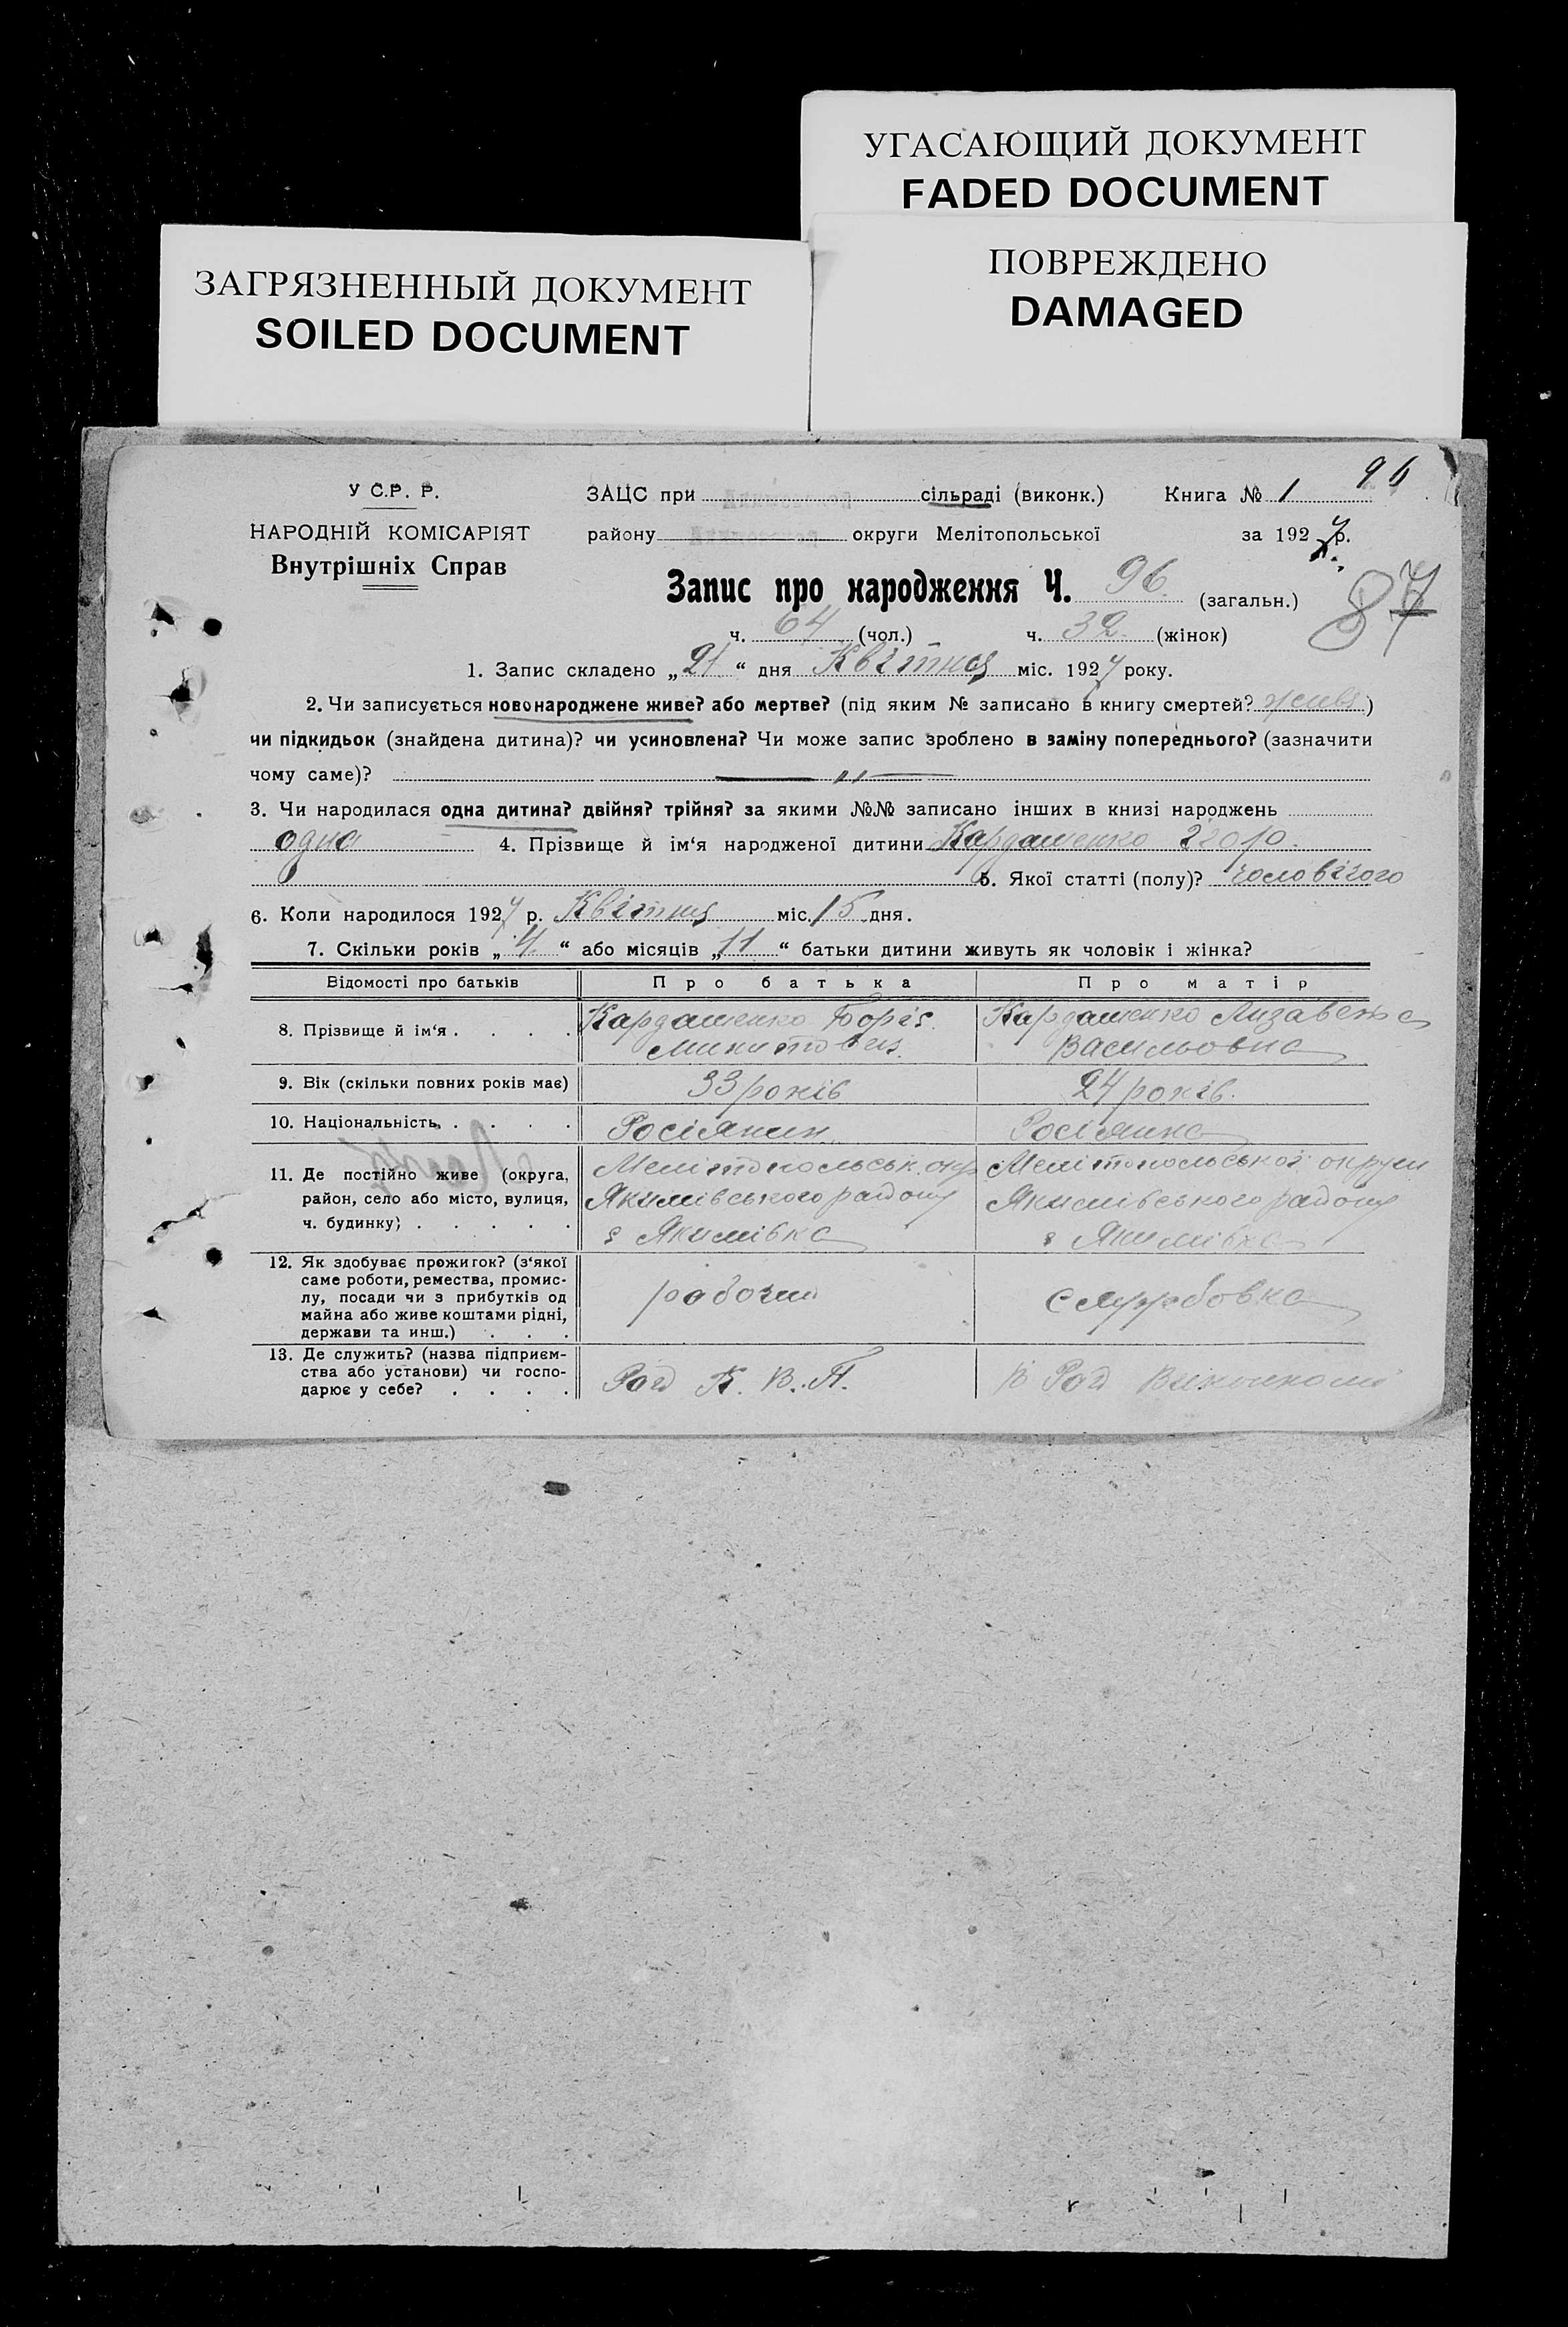 УГАСАЮЩИЙ ДОКУМЕНТ
FADED DOCUMENT
ЗАГРЯЗНЕННЫЙ ДОКУМЕНТ
SOILED DOCUMENT
ПОВРЕЖДЕНО
DAMAGED
96
У С.Р. Р.
НАРОДНІЙ КОМІСАРІЯТ
Внутрішніх Справ
ЗАЦС при сільраді (виконк.) Книга № 1
району округи Мелітопольської за 1927 р.
Запис про народження Ч. 96 (загальн.)
87
ч. 64 (чол.) ч. 32 (жінок)
1. Запис складено „21“ дня Квітня міс. 1927 року.
2. Чи записується новонароджене живе? або мертве? (під яким № записано в книгу смертей? живе)
чи підкидьок (знайдена дитина)? чи усиновлена? Чи може запис зроблено в заміну попереднього? (зазначити
чому саме)? — „ —
3. Чи народилася одна дитина? двійня? трійня? за якими №№ записано інших в книзі народжень
одна 4. Прізвище й ім‘я народженої дитини Кардашенко
5. Якої статті (полу)? чоловічого
6. Коли народилося 1927 р. Квітня міс. 15 дня.
7. Скільки років „4“ або місяців „11“ батьки дитини живуть як чоловік і жінка?
Відомості про батьків Про батька Про матір
8. Прізвище й ім‘я . . . . Кардашенко Боріс Кардашенко Лизавета
Микитович Васильовна
9. Вік (скільки повних років має) 33 років 24 років.
10. Національність . . . . Росіянин Росіянка
11. Де постійно живе (округа, район, село або місто, вулиця, ч. будинку) . . . . . Мелітопольськ. окр Мелітопольської округи
Якимівського району Якимівського району
с Якимівка с Якимівка
12. Як здобуває прожиток? (з‘якої
саме роботи, ремества, промис-
лу, посади чи з прибутків од
майна або живе коштами рідні,
держави та инш.) . . . рабочий службовка
13. Де служить? (назва підприєм-
ства або установи) чи госпо-
дарює у себе? . . . . Рай К. В. П. В Рай Виконкомі